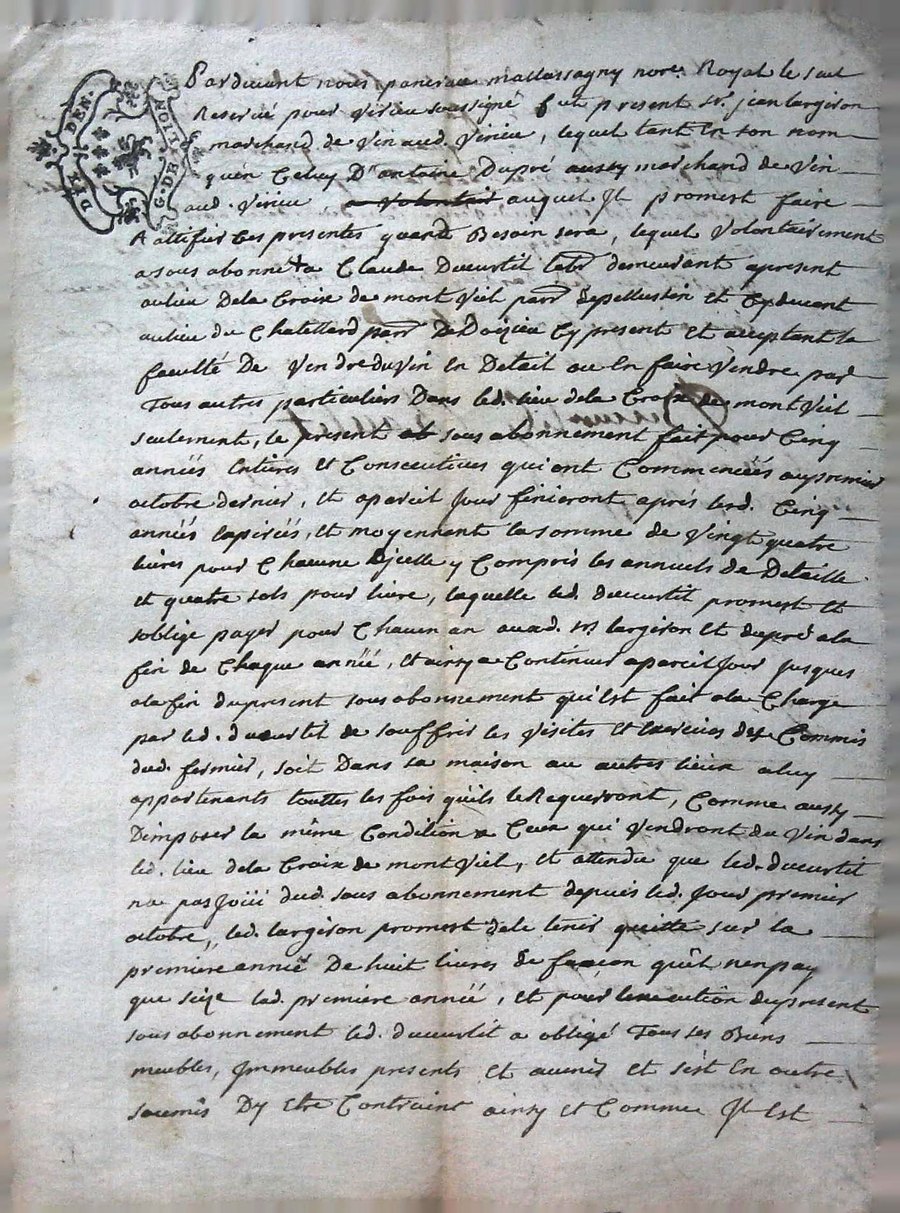 G. DE LYON
Pardevant nous pancrace mattassagny nore. Royal le seul
Reservé pour virieu soussigné fut present sr. jean largiron
marchand de vin aud. virieu, lequel tant En son nom
quen Celuy Dantoine Dupré aussy marchand de vin
aud. virieu, a volontair auquel Il promest faire
Rattifier Ces presentes quand Besoin sera, lequel volontairement
a sous abonné a Claude Ducurtil labr demeurant apresent
au lieu De la Croix de mont viel parr. depellussin et Cy devant
au lieu du Chatellard parr. De Doizieu Cy present et acceptant la
faculté De vendre du vin En Detail ou En faire vendre par
Tous autres particuliers Dans led. lieu de la Croix de mont viel
seulement, le present ab sous abonnement fait pour Cinq
années Entieres et Consecutives qui ont Commencées au premier
octobre dernier, et apareil Jour finieront aprés lesd. Cinq
années Expirées, et moyennant la somme de vingt quatre
livres pour Chacune Djcelle y Compris les annuels de Detaille
et quatre sols pour livre, laquelle led. ducurtil promest et
soblige payer pour Chacun an auxd. srs. largiron et dupré a la
fin de Chaque année, et ainsy a Continuer apareil Jour jusques
a la fin du present sous abonnement qu'il Est fait a la Charge
par led. ducurtil de souffrir les visites et Exercices des Commis
dud. fermier, soit Dans sa maison au autres lieux a luy
appartenants touttes les fois qu'ils le Requerront, Comme aussy
D'imposer la même Condition a Ceux qui vendront du vin dans
led. lieu de la Croix de mont viel, et attendu que led. ducurtil
na pas Joüi dud. sous abonnement depuis led. Jour premier
octobre, led. largiron promest de le tenir quitte sur la
premiere année De huit livres de façon quil nen pay
que seize lad. premiere année, et pour lexecution du present
sous abonnement led. ducurtil a obligé Tous ses Biens
meubles, Immeubles presents et avenir et s'est En outre
soumis Dy Etre Contraint ainsy et Comme Il Est